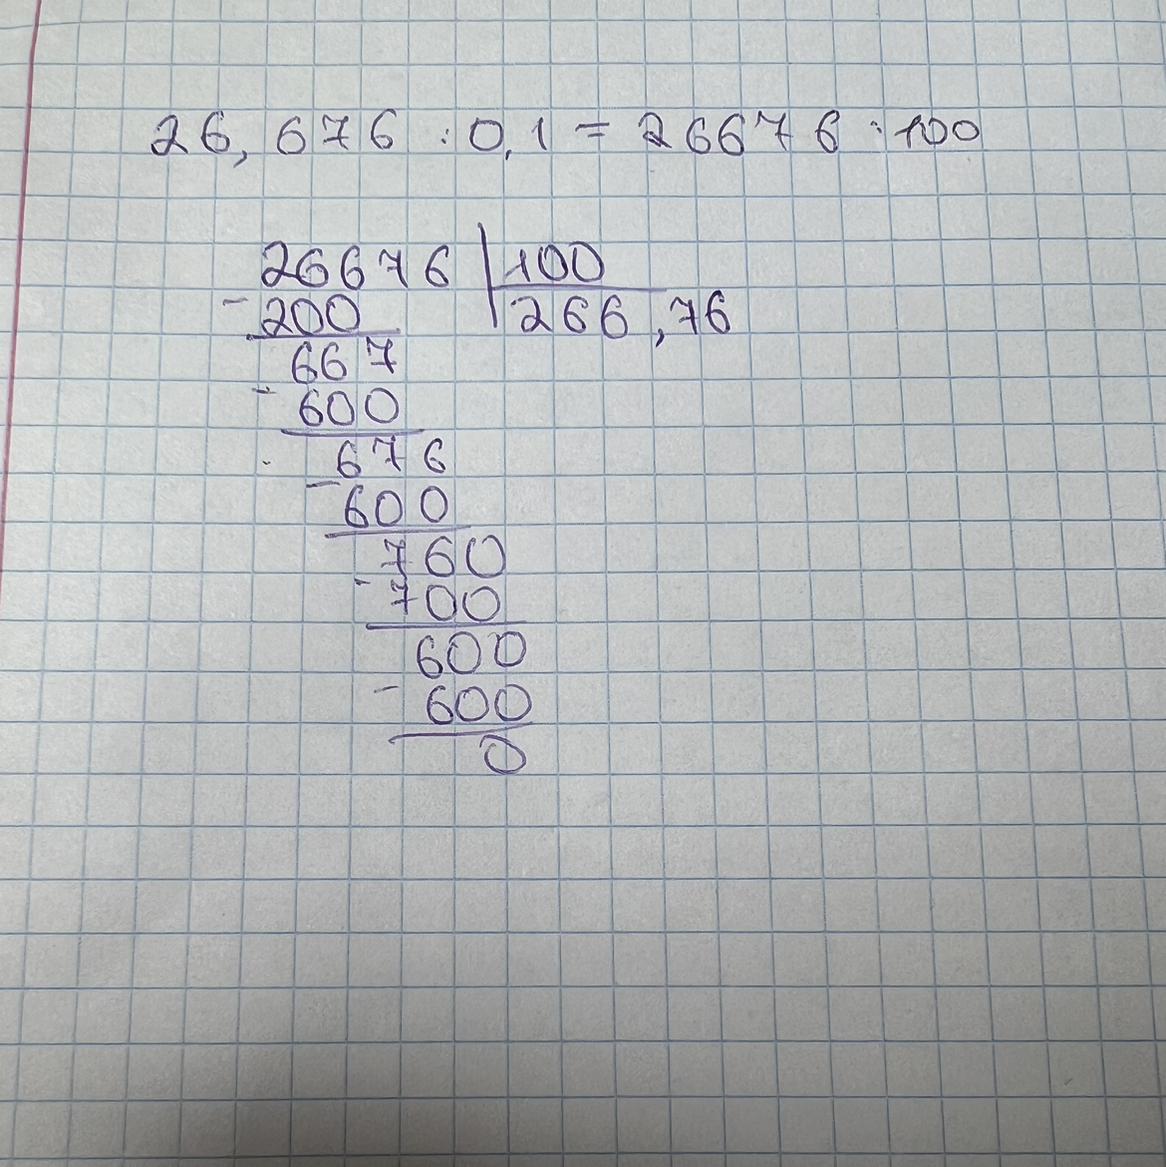 26,676 : 0,1 = 26676 : 100
26676 | 100
- 200 | 266,76
667
- 600
676
- 600
760
- 700
600
- 600
0